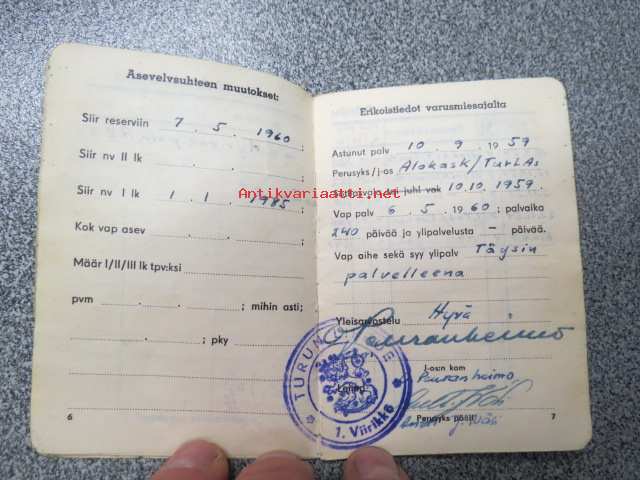 Asevelvsuhteen muutokset:
Siir reserviin 7 . 5 . 1960 ;
Siir nv II lk . . ;
Siir nv I lk 1 . 1 . 1985 ;
Kok vap asev . . ;
Määr I/II/III lk tpv:ksi
pvm . . ; mihin asti;
. . ; pky
6
Erikoistiedot varusmiesajalta
Astunut palv 10 . 9 . 1959
Perusyks/j-os Alokask/TurLAs
vak tai juhl vak 10.10.1959.
Vap palv 6 . 5 . 1960; palvaika
240 päivää ja ylipalvelusta – päivää.
Vap aihe sekä syy ylipalv Täysin
palvelleena
Yleisarvostelu Hyvä
J-osin kom
Pauranheimo
Perusyks pääll
7
TURUN
1. Viirikkö
Antikvariaatti.net